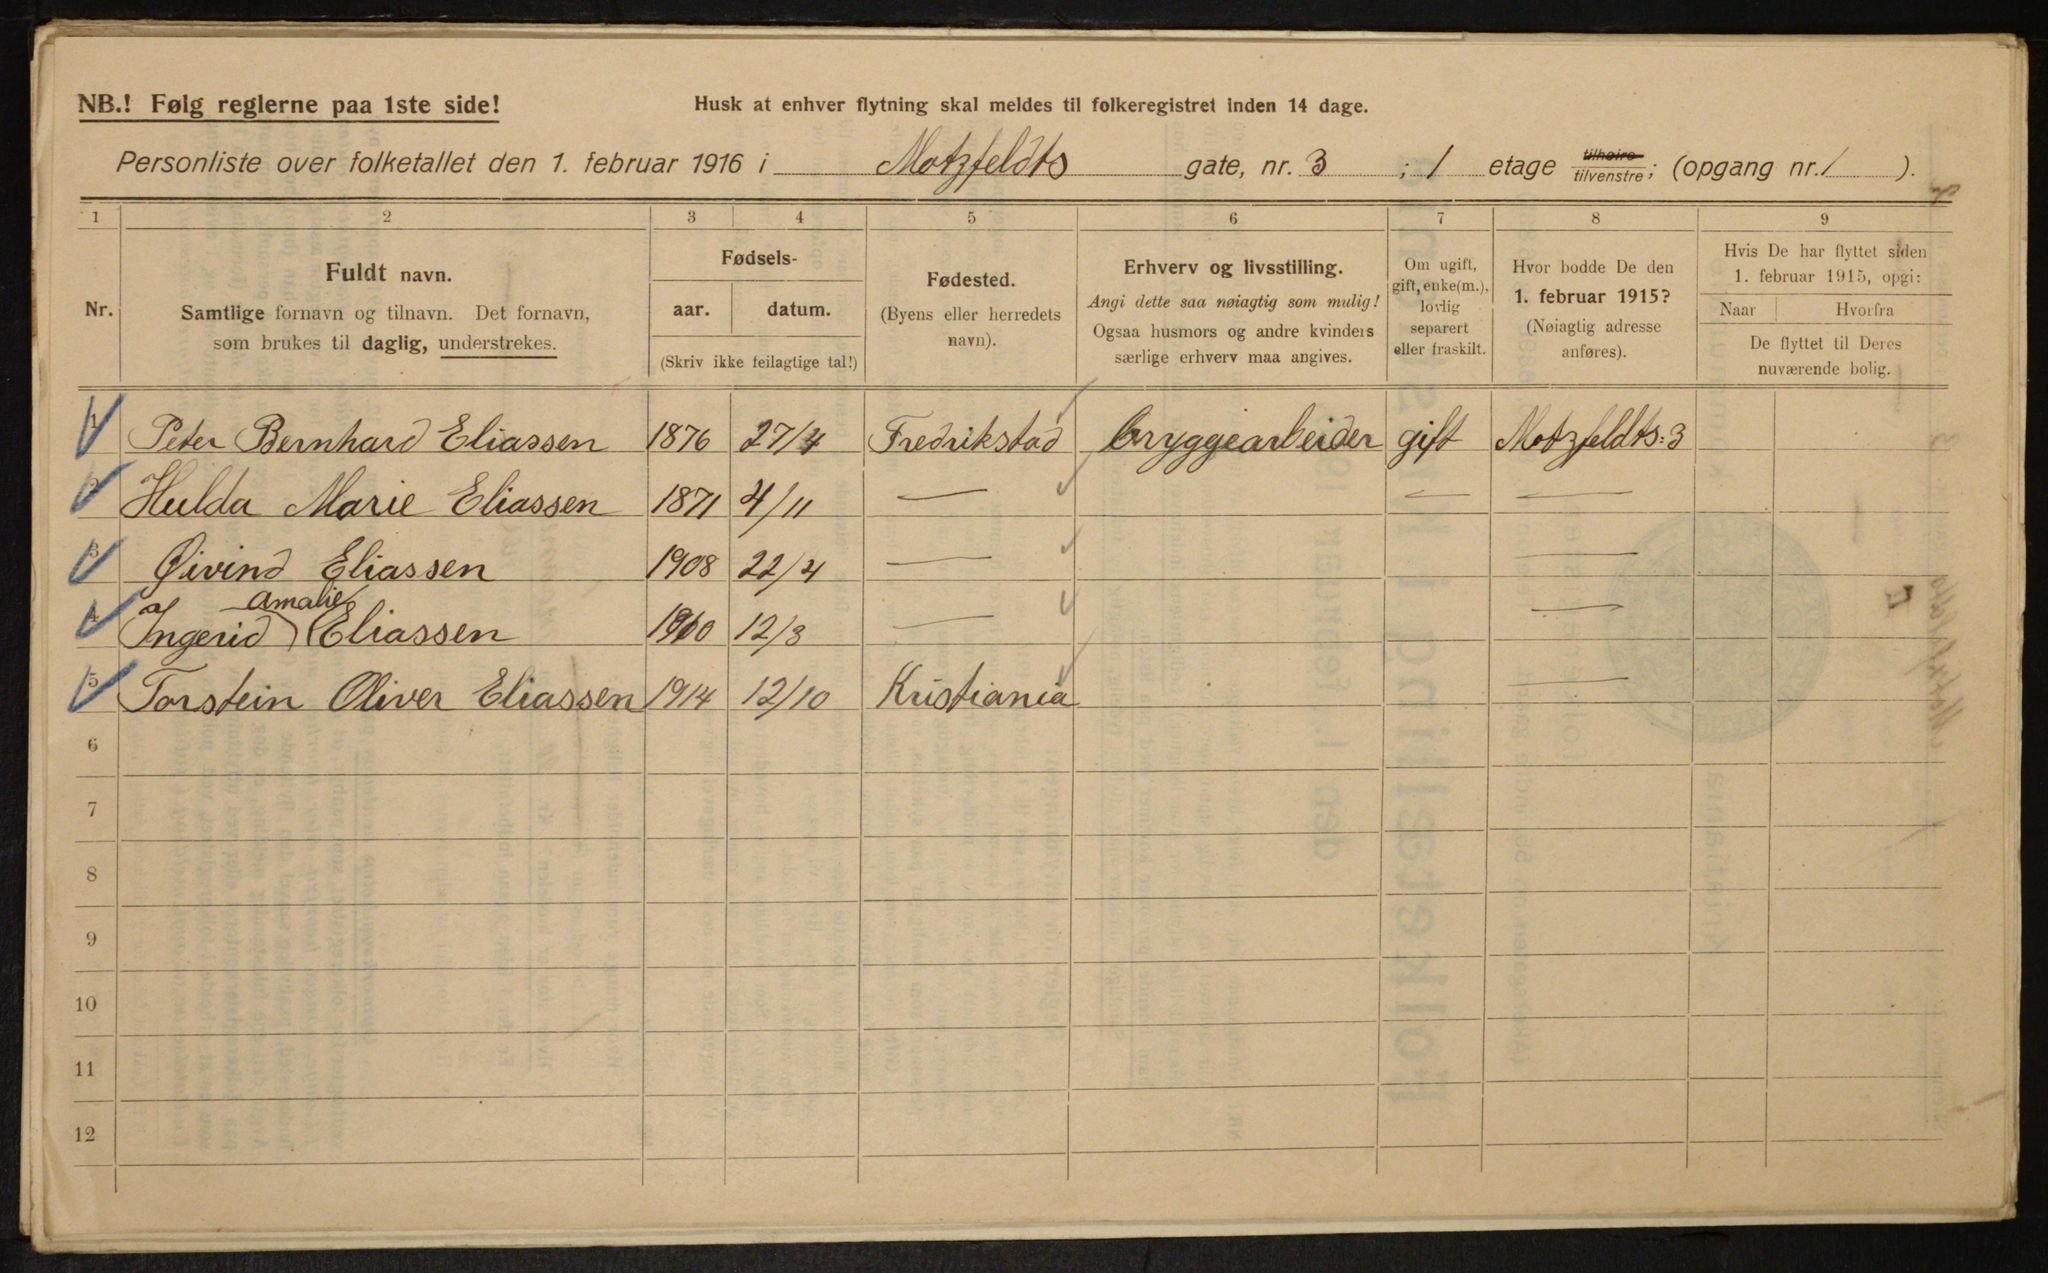 NB.! Følg reglerne paa 1ste side!
Husk at enhver flytning skal meldes til folkeregistret inden 14 dage.
Personliste over folketallet den 1. februar 1916 i Motzfeldts gate, nr. 3 ; 1 etage tilhøire tilvenstre; (opgang nr. 1 ).
1 2 3 4 5 6 7 8 9
Nr.
Fuldt navn.
Samtlige fornavn og tilnavn. Det fornavn,
som brukes til daglig, understrekes.
Fødsels-
aar. datum.
(Skriv ikke feilagtige tal!)
Fødested.
(Byens eller herredets
navn).
Erhverv og livsstilling.
Angi dette saa nøiagtig som mulig!
Ogsaa husmors og andre kvinders
særlige erhverv maa angives.
Om ugift,
gift, enke(m.),
lovlig
separert
eller fraskilt.
Hvor bodde De den
1. februar 1915?
(Nøiagtig adresse
anføres).
Hvis De har flyttet siden
1. februar 1915, opgi:
Naar Hvorfra
De flyttet til Deres
nuværende bolig.
1 Peter Bernhard Eliassen 1876 27/4 Fredrikstad bryggearbeider gift Motzfeldts: 3
2 Hulda Marie Eliassen 1871 4/11 — — —
3 Øivind Eliassen 1908 22/4 — —
Amalie
4 Ingerid Eliassen 1910 12/3 — —
5 Torstein Oliver Eliassen 1914 12/10 Kristiania —
6
7
8
9
10
11
12